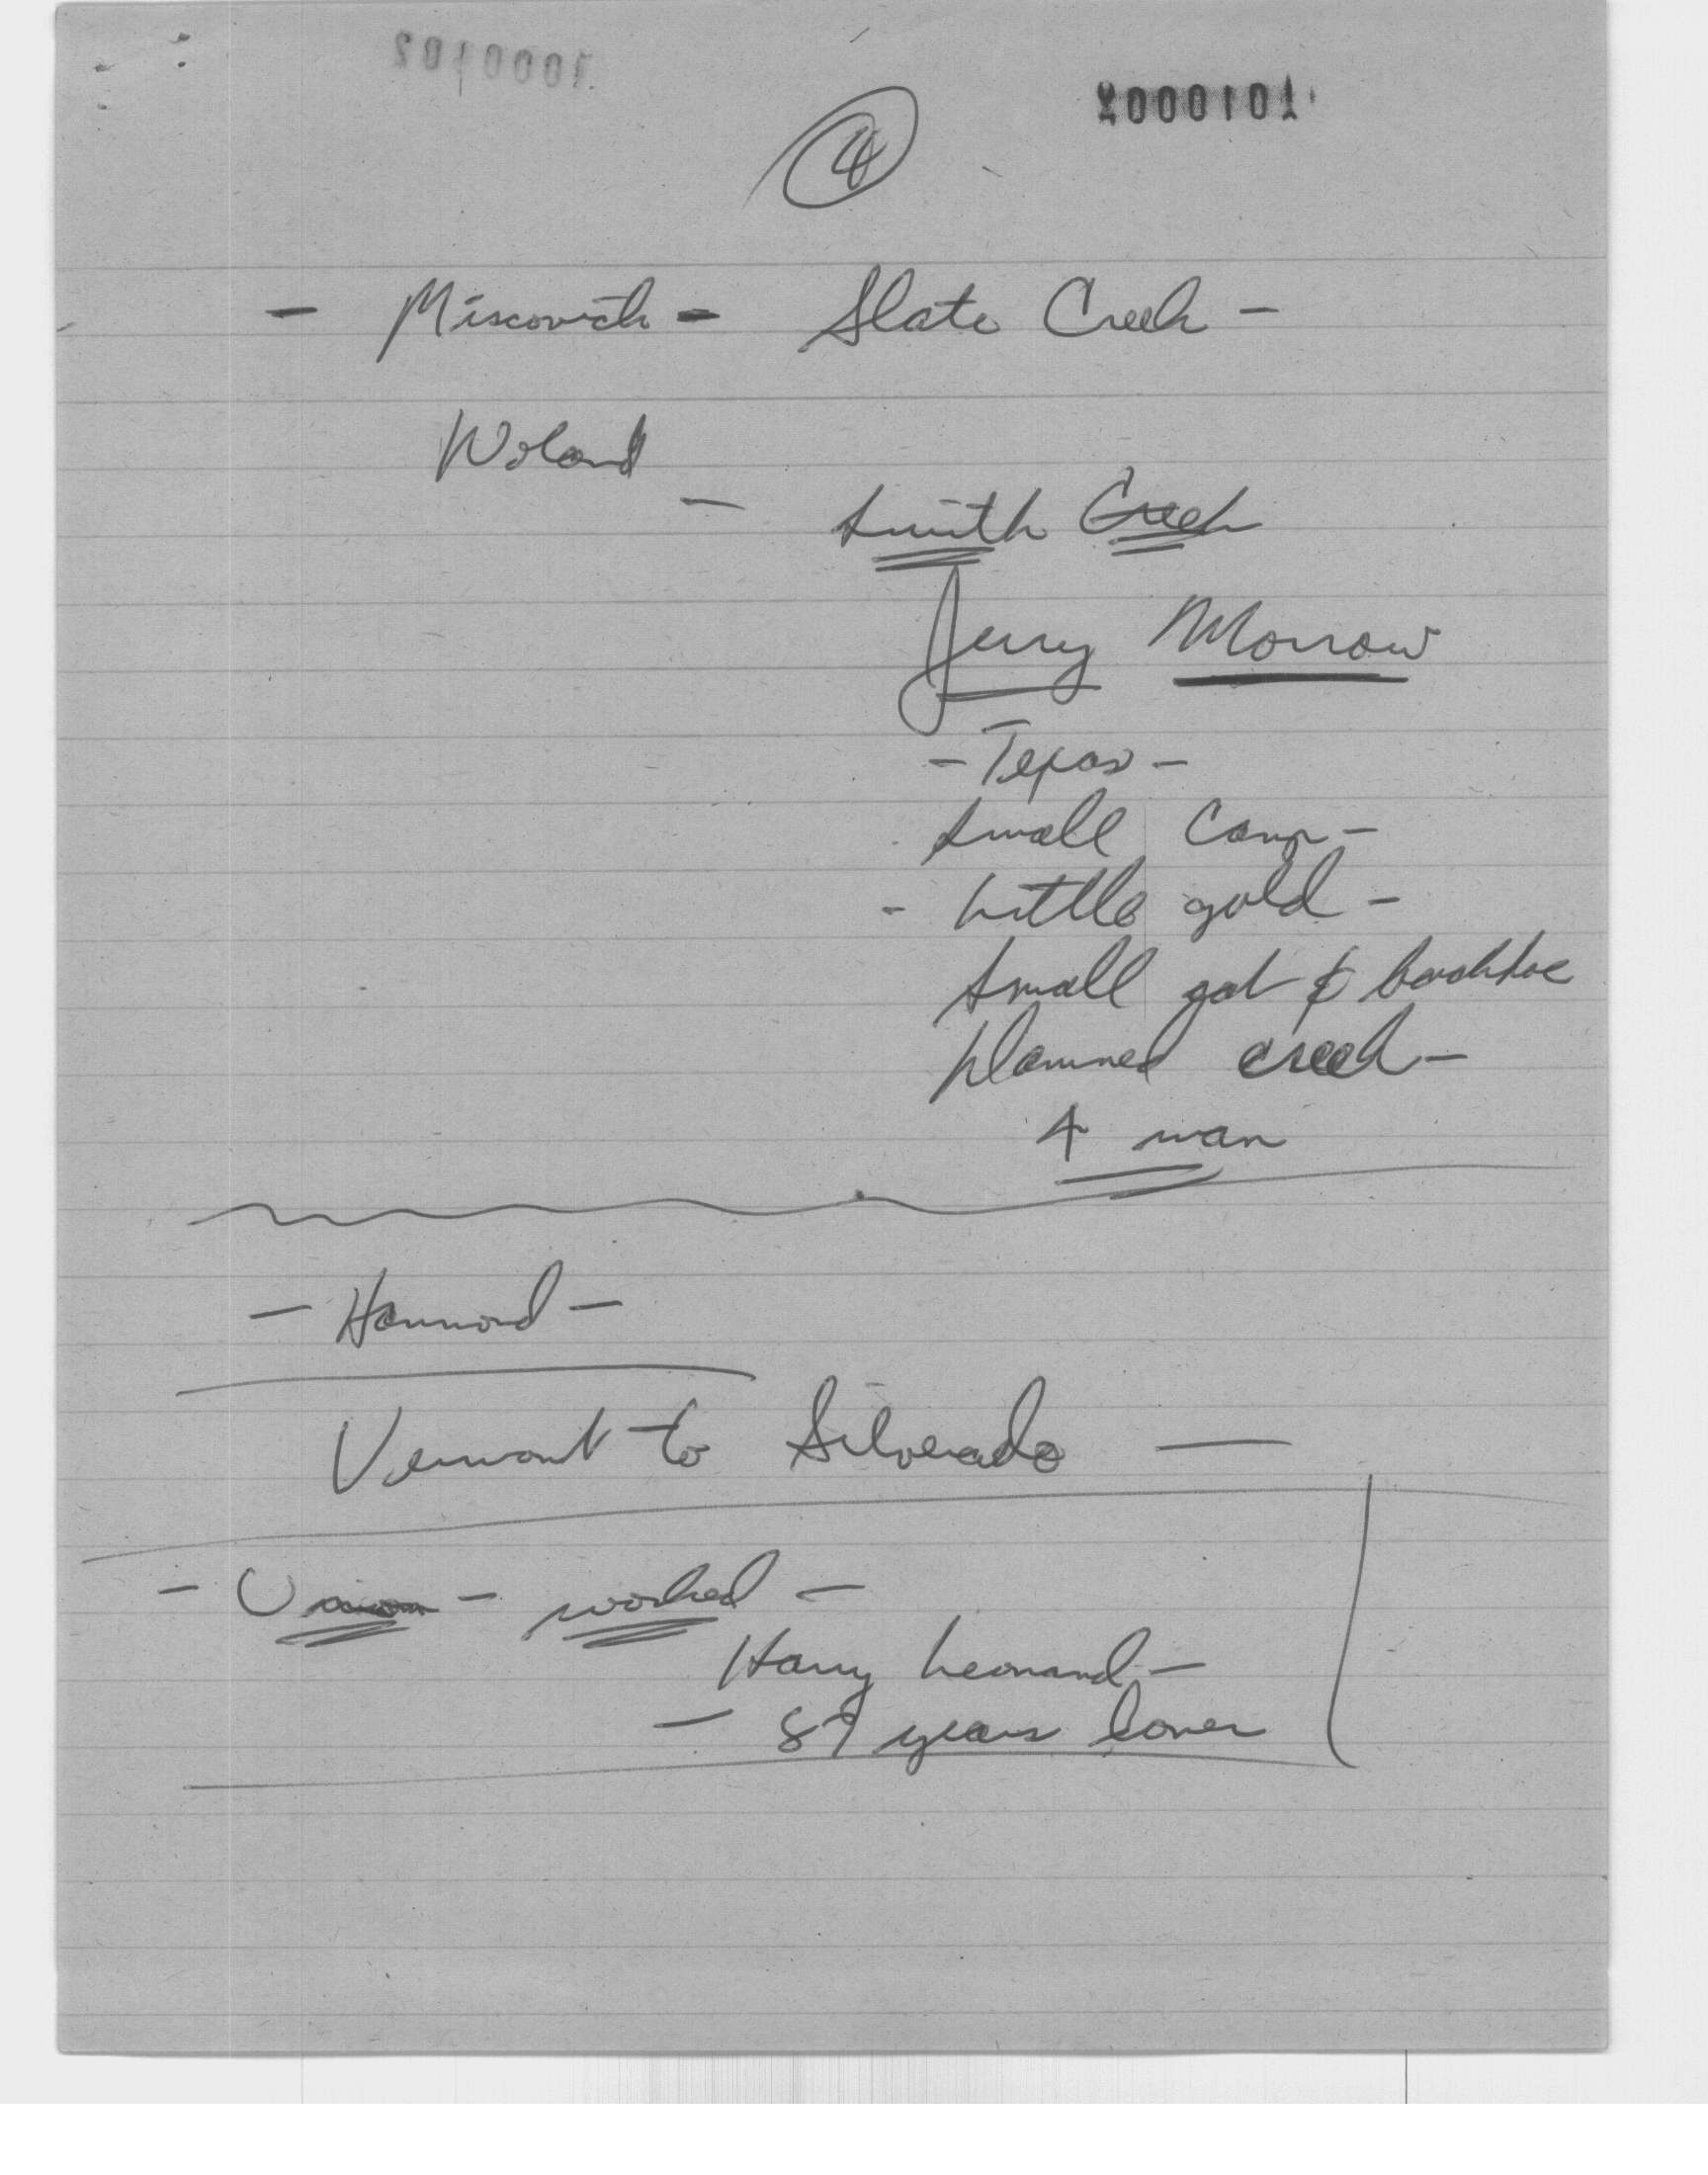 2000101
4
- Miscovich - Slate Creek -
Woland
- Smith Creek
Jerry Morrow
- Texas -
Small Camp -
- Little gold -
Small gat & backhoe
planned creek -
4 man
- Hammond -
Vermont to Silverado -
- Union - worked -
Harry Leonard -
- 89 years